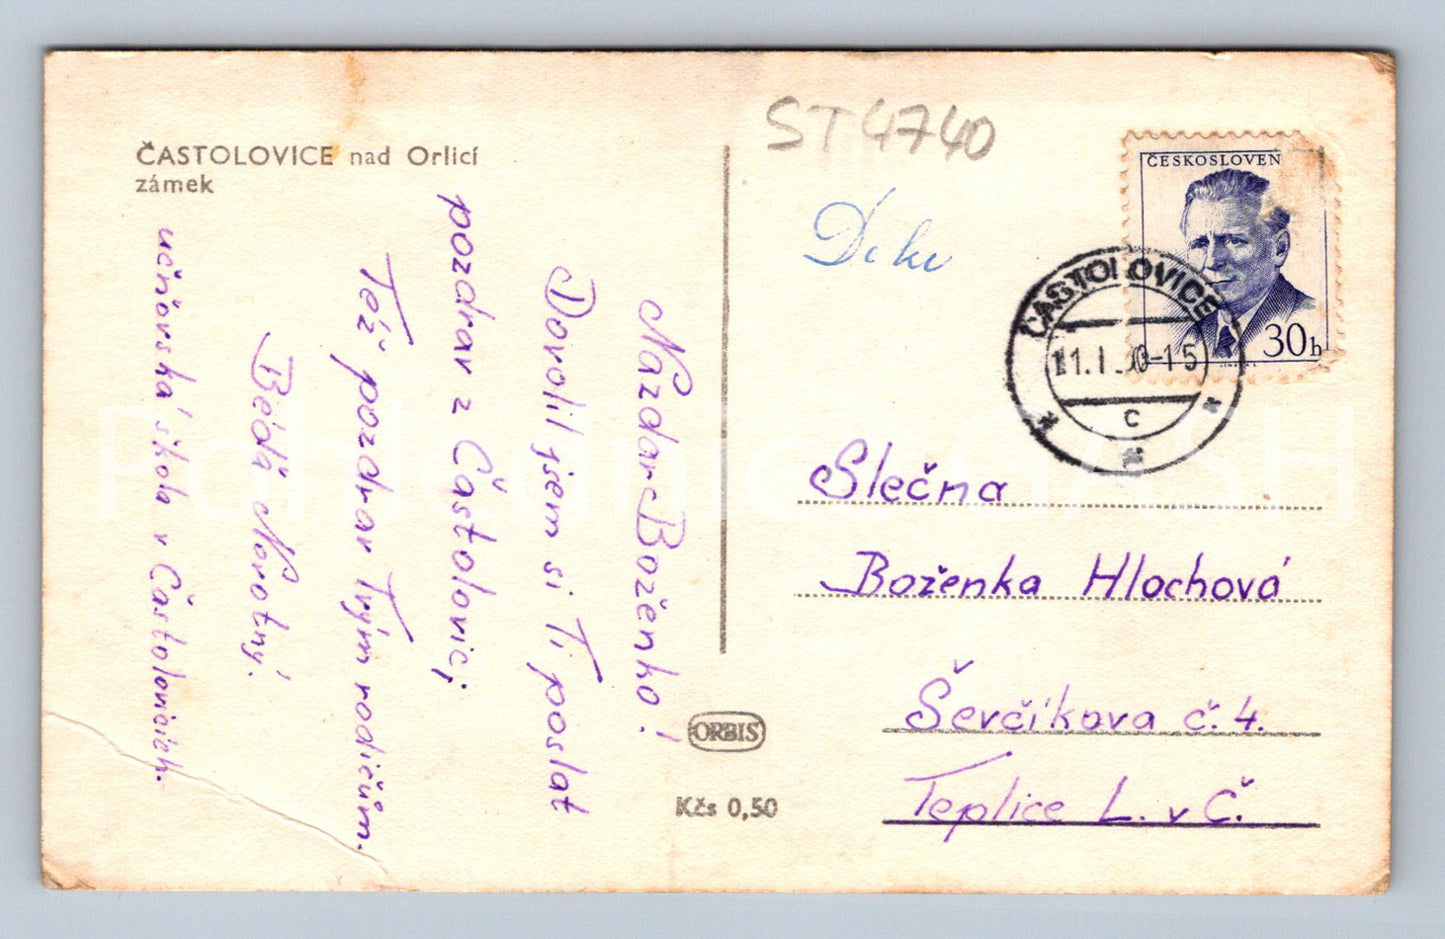 ČASTOLOVICE nad Orlicí
zámek
Nazdar Boženko!
Dovolil jsem si Ti poslat
pozdrav z Častolovic;
Též pozdrav Tvým rodičům.
Béďa Novotný.
učňovská škola v Častolovicích.
ORBIS
Kčs 0,50
ST4740
ČESKOSLOVEN
30h
ČASTOLOVICE
-15
c
Slečna
Boženka Hlochová
Ševčíkova č. 4.
Teplice L. v Č.